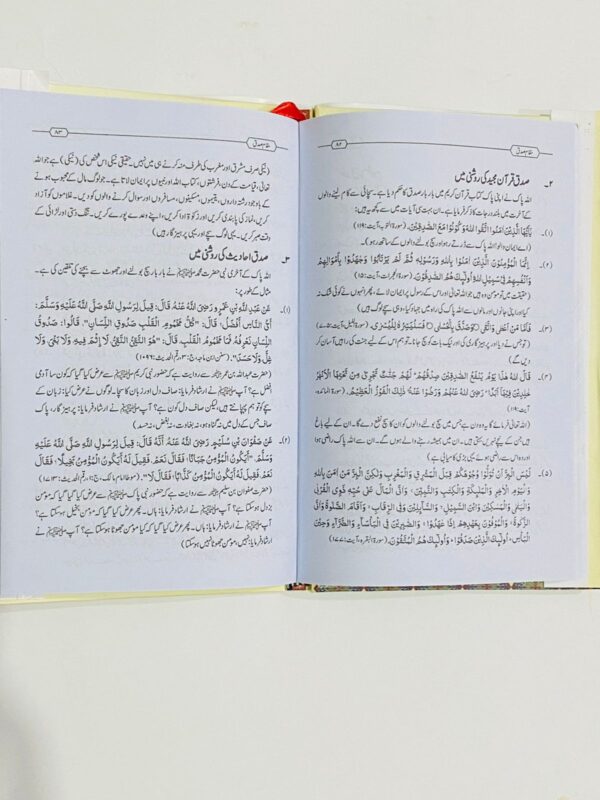 ۸۲
مقامِ صدق
۲۔ صدق قرآن مجید کی روشنی میں
اللہ پاک نے اپنی پاک کتاب قرآن کریم میں بار بار صدق کا حکم دیا ہے۔ سچائی سے کام لینے والوں
کے آخرت میں بلند درجات کا ذکر فرمایا ہے۔ ان بہت سی آیات میں سے کچھ یہ ہیں:
(۱)۔ يٰٓاَيُّهَا الَّذِيْنَ اٰمَنُوا اتَّقُوا اللّٰهَ وَكُوْنُوْا مَعَ الصّٰدِقِيْنَ۔ (سورۃ التوبہ، آیت:۱۱۹)
(اے ایمان والو! اللہ پاک سے ڈرتے رہو اور سچ بولنے والوں کے ساتھ رہو)۔
(۲)۔ اِنَّمَا الْمُؤْمِنُوْنَ الَّذِيْنَ اٰمَنُوْا بِاللّٰهِ وَرَسُوْلِهٖ ثُمَّ لَمْ يَرْتَابُوْا وَجٰهَدُوْا بِاَمْوَالِهِمْ
وَاَنْفُسِهِمْ فِيْ سَبِيْلِ اللّٰهِ اُولٰٓئِكَ هُمُ الصّٰدِقُوْنَ۔ (سورۃ الحجرات، آیت:۱۵)
(حقیقت میں تو مومن وہ ہیں جو اللہ تعالیٰ اور اس کے رسول پر ایمان لائے، پھر انہوں نے کوئی شک نہ
کیا اور اپنی جانوں اور مالوں سے اللہ کی راہ میں جہاد کیا، وہی لوگ سچے ہیں)
(۳)۔ فَاَمَّا مَنْ اَعْطٰى وَاتَّقٰى وَصَدَّقَ بِالْحُسْنٰى فَسَنُيَسِّرُهٗ لِلْيُسْرٰى۔
(تو جس نے دیا، اور پرہیزگاری کی اور نیک بات کو سچ جانا، تو ہم اس کے لیے جنت کی راہیں آسان کر
دیں گے)
(۴)۔ قَالَ اللّٰهُ هٰذَا يَوْمُ يَنْفَعُ الصّٰدِقِيْنَ صِدْقُهُمْ لَهُمْ جَنّٰتٌ تَجْرِيْ مِنْ تَحْتِهَا الْاَنْهٰرُ
خٰلِدِيْنَ فِيْهَا اَبَدًا رَضِيَ اللّٰهُ عَنْهُمْ وَرَضُوْا عَنْهُ ذٰلِكَ الْفَوْزُ الْعَظِيْمُ۔
آیت:۱۱۹)
(اللہ تعالیٰ فرمائے گا یہ وہ دن ہے جس میں سچ بولنے والوں کو ان کا سچ نفع دے گا۔ ان کے لیے باغ
ہیں جن کے نیچے نہریں بہتی ہیں۔ ان میں ہمیشہ رہنے والے ہوں گے۔ ان سے اللہ پاک راضی ہوا
اور وہ اس سے راضی ہوئے یہی بڑی کامیابی ہے)
(۵)۔ لَيْسَ الْبِرَّ اَنْ تُوَلُّوْا وُجُوْهَكُمْ قِبَلَ الْمَشْرِقِ وَالْمَغْرِبِ وَلٰكِنَّ الْبِرَّ مَنْ اٰمَنَ بِاللّٰهِ
وَالْيَوْمِ الْاٰخِرِ وَالْمَلٰٓئِكَةِ وَالْكِتٰبِ وَالنَّبِيّٖنَ، وَاٰتَى الْمَالَ عَلٰى حُبِّهٖ ذَوِى الْقُرْبٰى
وَالْيَتٰمٰى وَالْمَسٰكِيْنَ وَابْنَ السَّبِيْلِ، وَالسَّآئِلِيْنَ وَفِى الرِّقَابِ، وَاَقَامَ الصَّلٰوةَ وَاٰتَى
الزَّكٰوةَ، وَالْمُوْفُوْنَ بِعَهْدِهِمْ اِذَا عٰهَدُوْا، وَالصّٰبِرِيْنَ فِى الْبَاْسَآءِ وَالضَّرَّآءِ وَحِيْنَ
الْبَاْسِ، اُولٰٓئِكَ الَّذِيْنَ صَدَقُوْا، وَاُولٰٓئِكَ هُمُ الْمُتَّقُوْنَ۔ (سورۃ البقرہ، آیت:۱۷۷)
مقامِ صدق
۸۳
(نیکی صرف مشرق اور مغرب کی طرف منہ کرنے ہی میں نہیں۔ حقیقی نیکی اس شخص کی (نیکی) ہے جو اللہ
تعالیٰ، قیامت کے دن، فرشتوں، کتاب اللہ اور نبیوں پر ایمان لاتا ہے۔ جو لوگ مال کے محبوب ہونے
کے باوجود رشتہ داروں، یتیموں، مسکینوں، مسافروں اور سوال کرنے والوں کو دیں۔ غلاموں کو آزاد
کریں، نماز کی پابندی کریں اور زکوٰۃ ادا کریں، اپنے وعدے پورے کریں۔ تنگ دستی اور لڑائی کے
وقت صبر کریں۔ یہی لوگ سچے اور یہی پرہیزگار ہیں)
۳۔ صدق احادیث کی روشنی میں
اللہ پاک کے آخری نبی حضرت محمد ﷺ نے بھی بار بار سچ بولنے اور جھوٹ سے بچنے کی تلقین کی ہے۔
مثال کے طور پر:
(۱)۔ عَنْ عَبْدِ اللّٰهِ بْنِ عَمْرٍو رَضِيَ اللّٰهُ عَنْهُ قَالَ: قِيْلَ لِرَسُوْلِ اللّٰهِ صَلَّى اللّٰهُ عَلَيْهِ وَسَلَّمَ:
اَيُّ النَّاسِ اَفْضَلُ، قَالَ: "كُلُّ مَخْمُوْمِ الْقَلْبِ صَدُوْقِ اللِّسَانِ". قَالُوْا: صَدُوْقُ
اللِّسَانِ نَعْرِفُهٗ فَمَا مَخْمُوْمُ الْقَلْبِ قَالَ: "هُوَ التَّقِيُّ النَّقِيُّ لَا اِثْمَ فِيْهِ وَلَا بَغْيَ وَلَا
غِلَّ وَلَا حَسَدَ". (سنن ابن ماجہ، ج:
(حضرت عبداللہ بن عمرو سے روایت ہے کہ حضور نبی کریم ﷺ سے عرض کیا گیا کون سا آدمی
افضل ہے؟ آپ ﷺ نے ارشاد فرمایا: صاف دل اور زبان کا سچا۔ لوگوں نے عرض کیا: زبان کے
سچے کو تو ہم پہچانتے ہیں، لیکن صاف دل کون ہے؟ آپ ﷺ نے ارشاد فرمایا: پرہیزگار، پاک
صاف جس کے دل میں نہ گناہ ہو، نہ بغاوت، نہ بغض، نہ حسد)
(۲)۔ عَنْ صَفْوَانَ بْنِ سُلَيْمٍ رَضِيَ اللّٰهُ عَنْهُ اَنَّهٗ قَالَ: قِيْلَ لِرَسُوْلِ اللّٰهِ صَلَّى اللّٰهُ عَلَيْهِ
وَسَلَّمَ: "اَيَكُوْنُ الْمُؤْمِنُ جَبَانًا؟ فَقَالَ: نَعَمْ، فَقِيْلَ لَهٗ اَيَكُوْنُ الْمُؤْمِنُ بَخِيْلًا؟ فَقَالَ:
نَعَمْ، فَقِيْلَ لَهٗ اَيَكُوْنُ الْمُؤْمِنُ كَذَّابًا؟ فَقَالَ لَا"۔ (موطا امام مالک، ج:
(حضرت صفوان بن سلیم سے روایت ہے کہ حضور نبی پاک ﷺ سے عرض کیا گیا کہ مومن
بزدل ہو سکتا ہے؟ آپ ﷺ نے ارشاد فرمایا: ہاں۔ پھر عرض کیا گیا کہ کیا مومن بخیل ہو سکتا ہے؟
آپ ﷺ نے ارشاد فرمایا: ہاں۔ پھر عرض کیا گیا کہ کیا مومن جھوٹا ہو سکتا ہے؟ آپ ﷺ نے
ارشاد فرمایا: نہیں، مومن جھوٹا نہیں ہو سکتا)